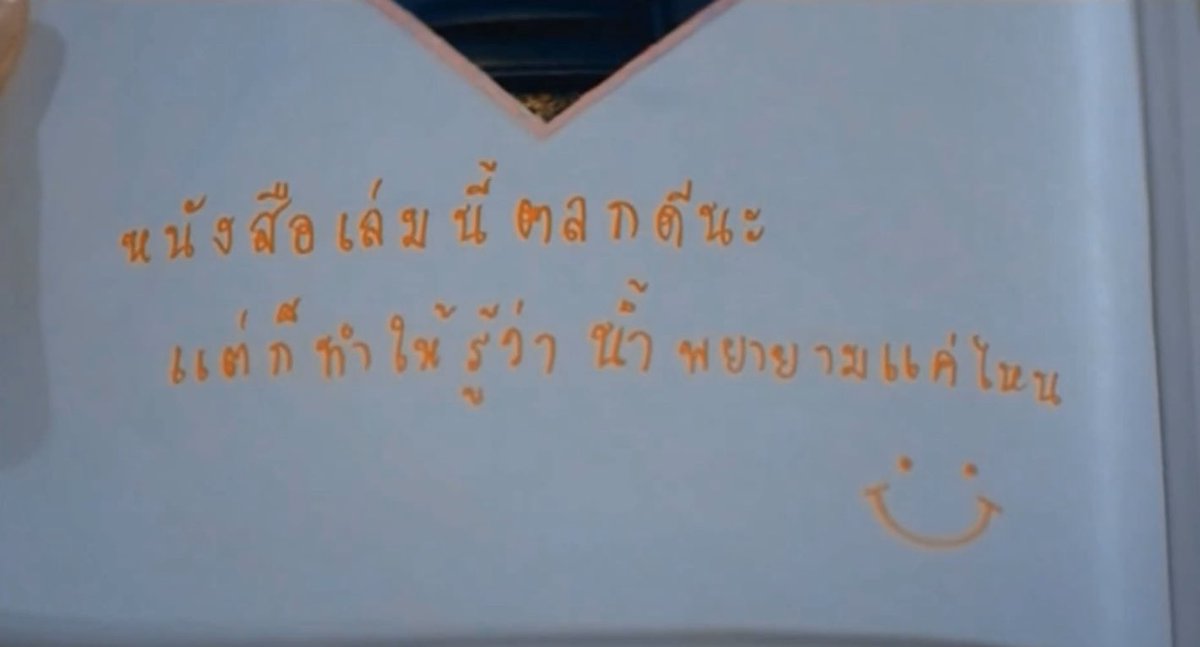 หนังสือเล่มนี้ตลกดีนะ
แต่ก็ทำให้รู้ว่า น้ำ พยายามแค่ไหน